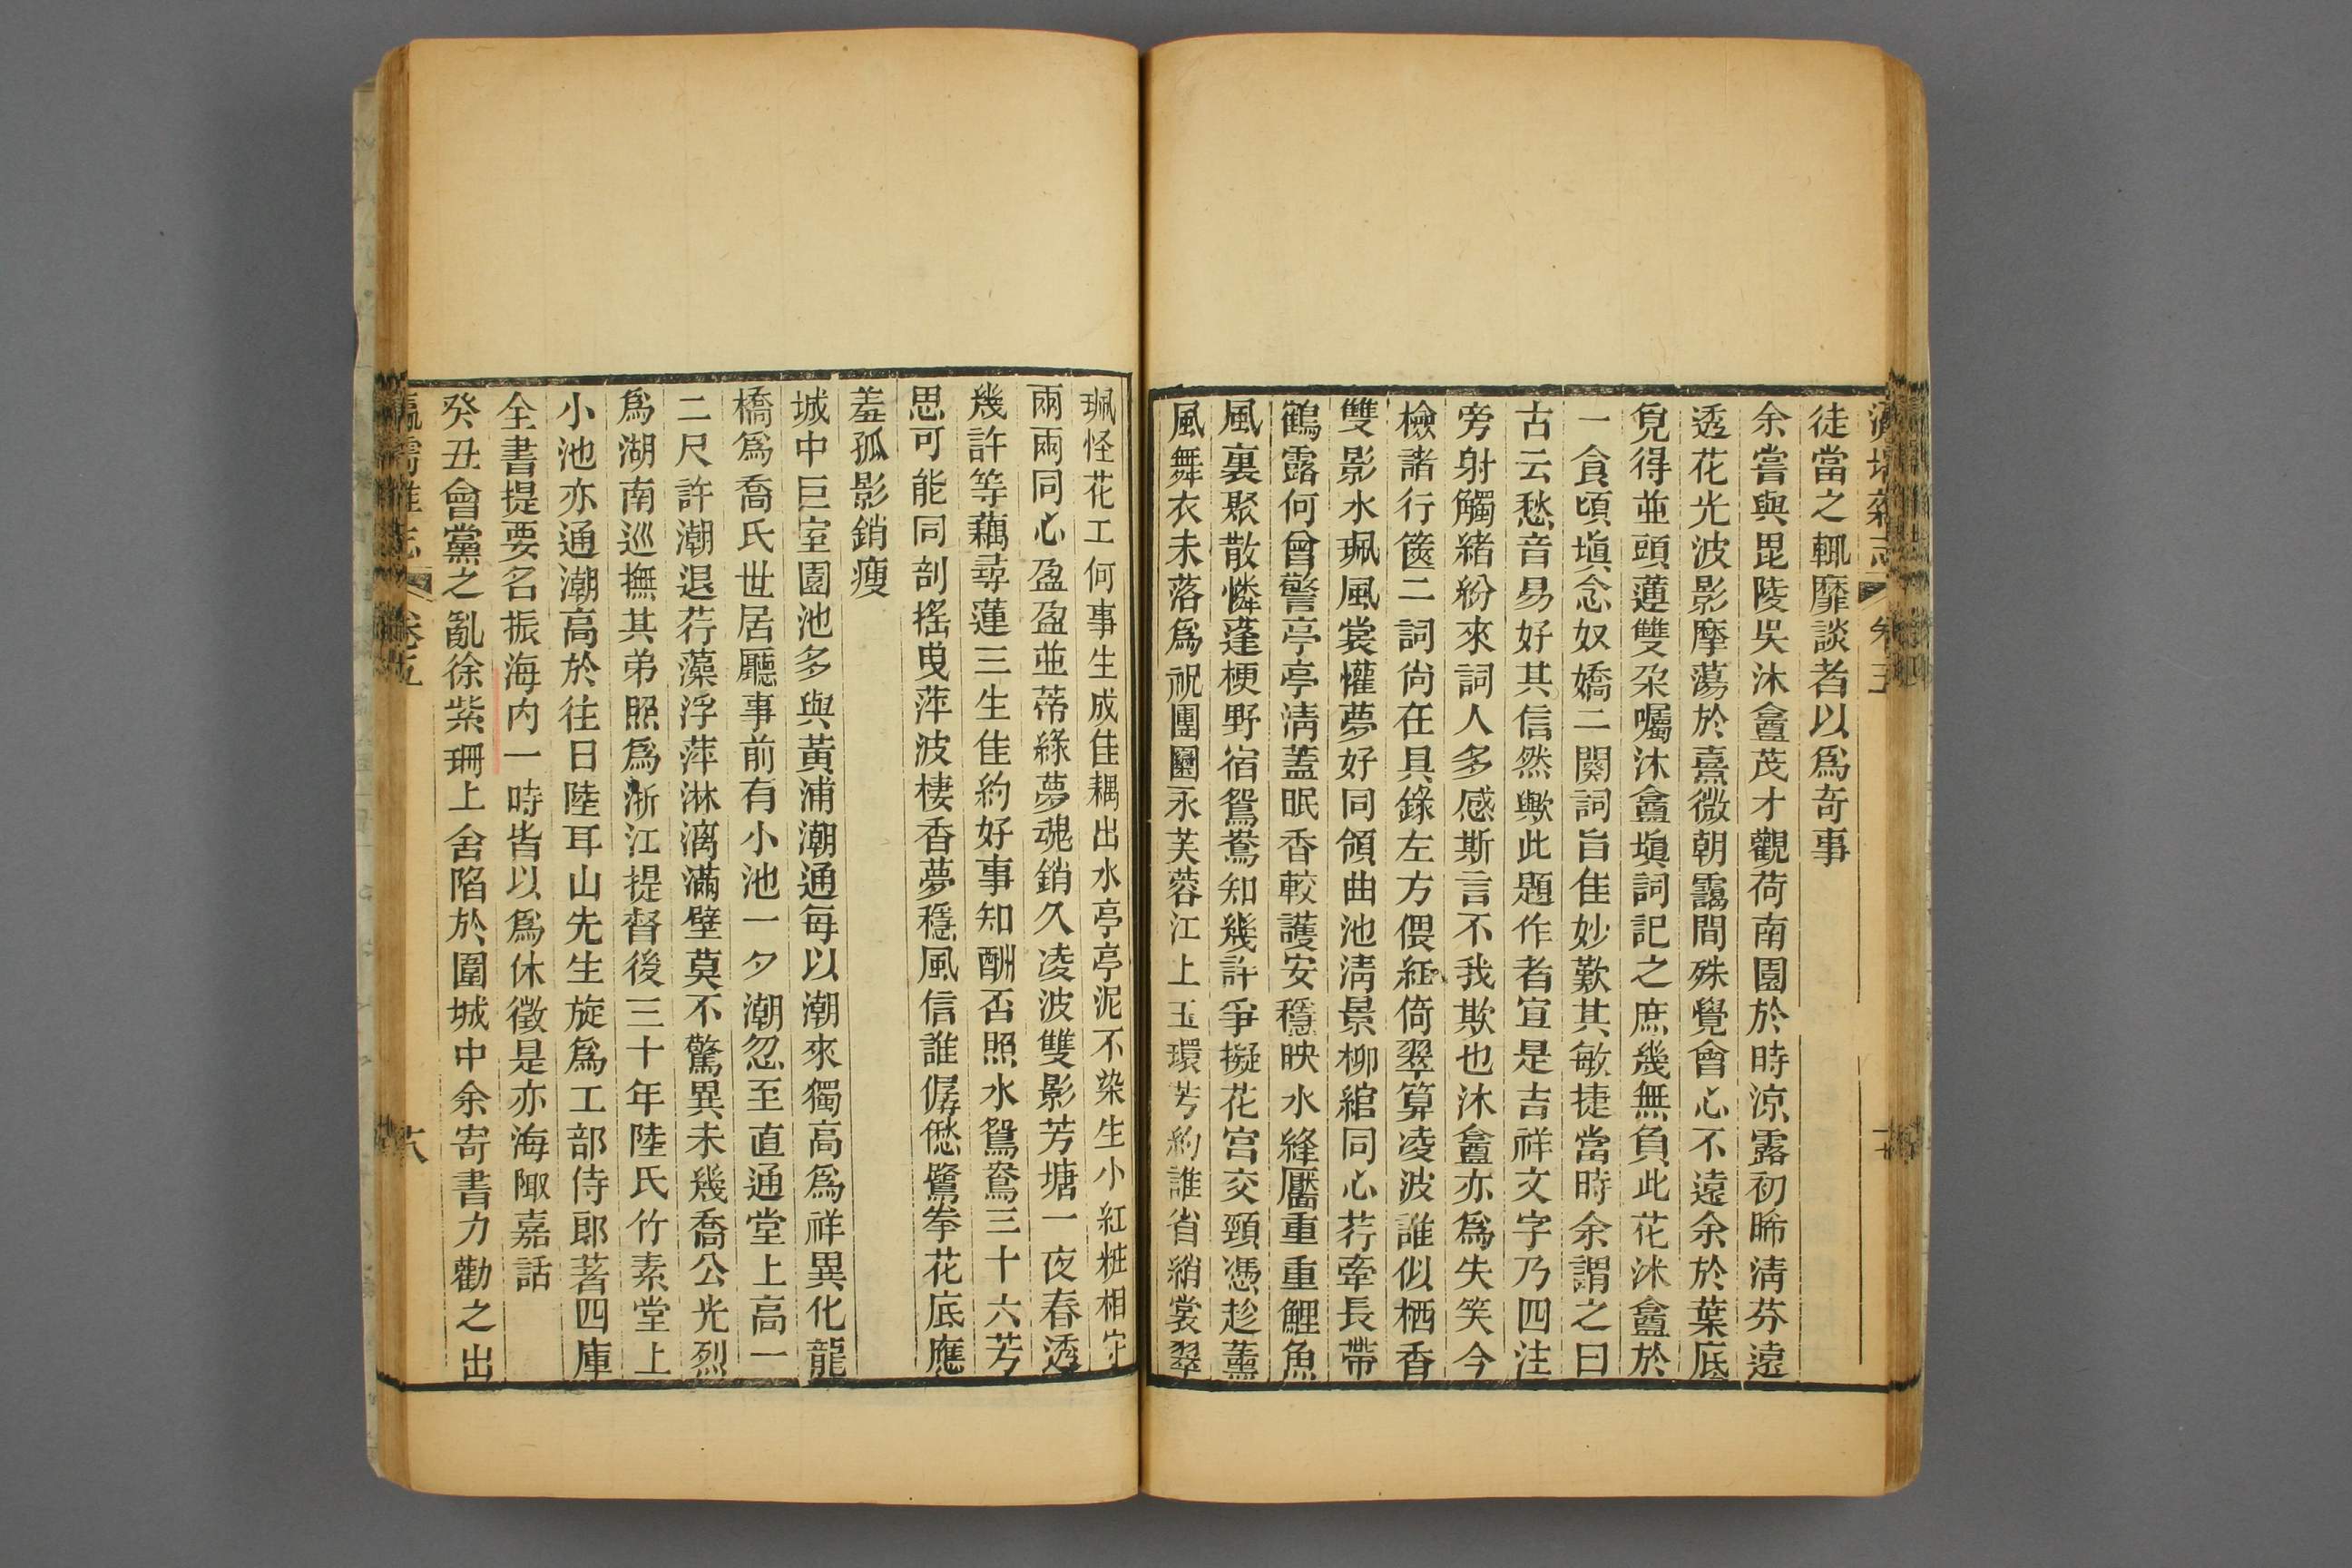 徒當之輒靡談者以爲奇事
余嘗與毘陵吳沐盦茂才觀荷南園於時涼露初晞淸芬遠
透花光波影摩蕩於熹微朝靄間殊覺會心不遠余於葉底
覓得並頭蓮雙朶囑沐盦塡詞記之庶幾無負此花沐盦於
一食頃塡念奴嬌二闋詞旨佳妙歎其敏捷當時余謂之曰
古云愁音易好其信然歟此題作者宜是吉祥文字乃四注
旁射觸緒紛來詞人多感斯言不我欺也沐盦亦爲失笑今
檢諸行篋二詞尙在具錄左方偎紅倚翠算凌波誰似栖香
雙影水珮風裳懽夢好同領曲池淸景柳綰同心荇牽長帶
鶴露何曾警亭亭淸蓋眠香較護安穩映水絳靨重重鯉魚
風裏聚散憐蓬梗野宿鴛鴦知幾許爭擬花宮交頸憑趁薰
風舞衣未落爲祝團圞永芙蓉江上玉環芳約誰省綃裳翠
珮怪花工何事生成佳耦出水亭亭泥不染生小紅粧相守
兩兩同心盈盈並蒂緣夢魂銷久凌波雙影芳塘一夜春透
幾許等藕尋蓮三生佳約好事知酬否照水鴛鴦三十六芳
思可能同剖搖曳萍波棲香夢穩風信誰僝僽鷺拳花底應
羞孤影銷瘦
城中巨室園池多與黃浦潮通每以潮來獨高爲祥異化龍
橋爲喬氏世居廳事前有小池一夕潮忽至直通堂上高一
二尺許潮退荇藻浮萍淋漓滿壁莫不驚異未幾喬公光烈
爲湖南巡撫其弟照爲浙江提督後三十年陸氏竹素堂上
小池亦通潮高於往日陸耳山先生旋爲工部侍郎著四庫
全書提要名振海內一時皆以爲休徵是亦海陬嘉話
癸丑會黨之亂徐紫珊上舍陷於圍城中余寄書力勸之出
瀛壖雜志 卷五 六